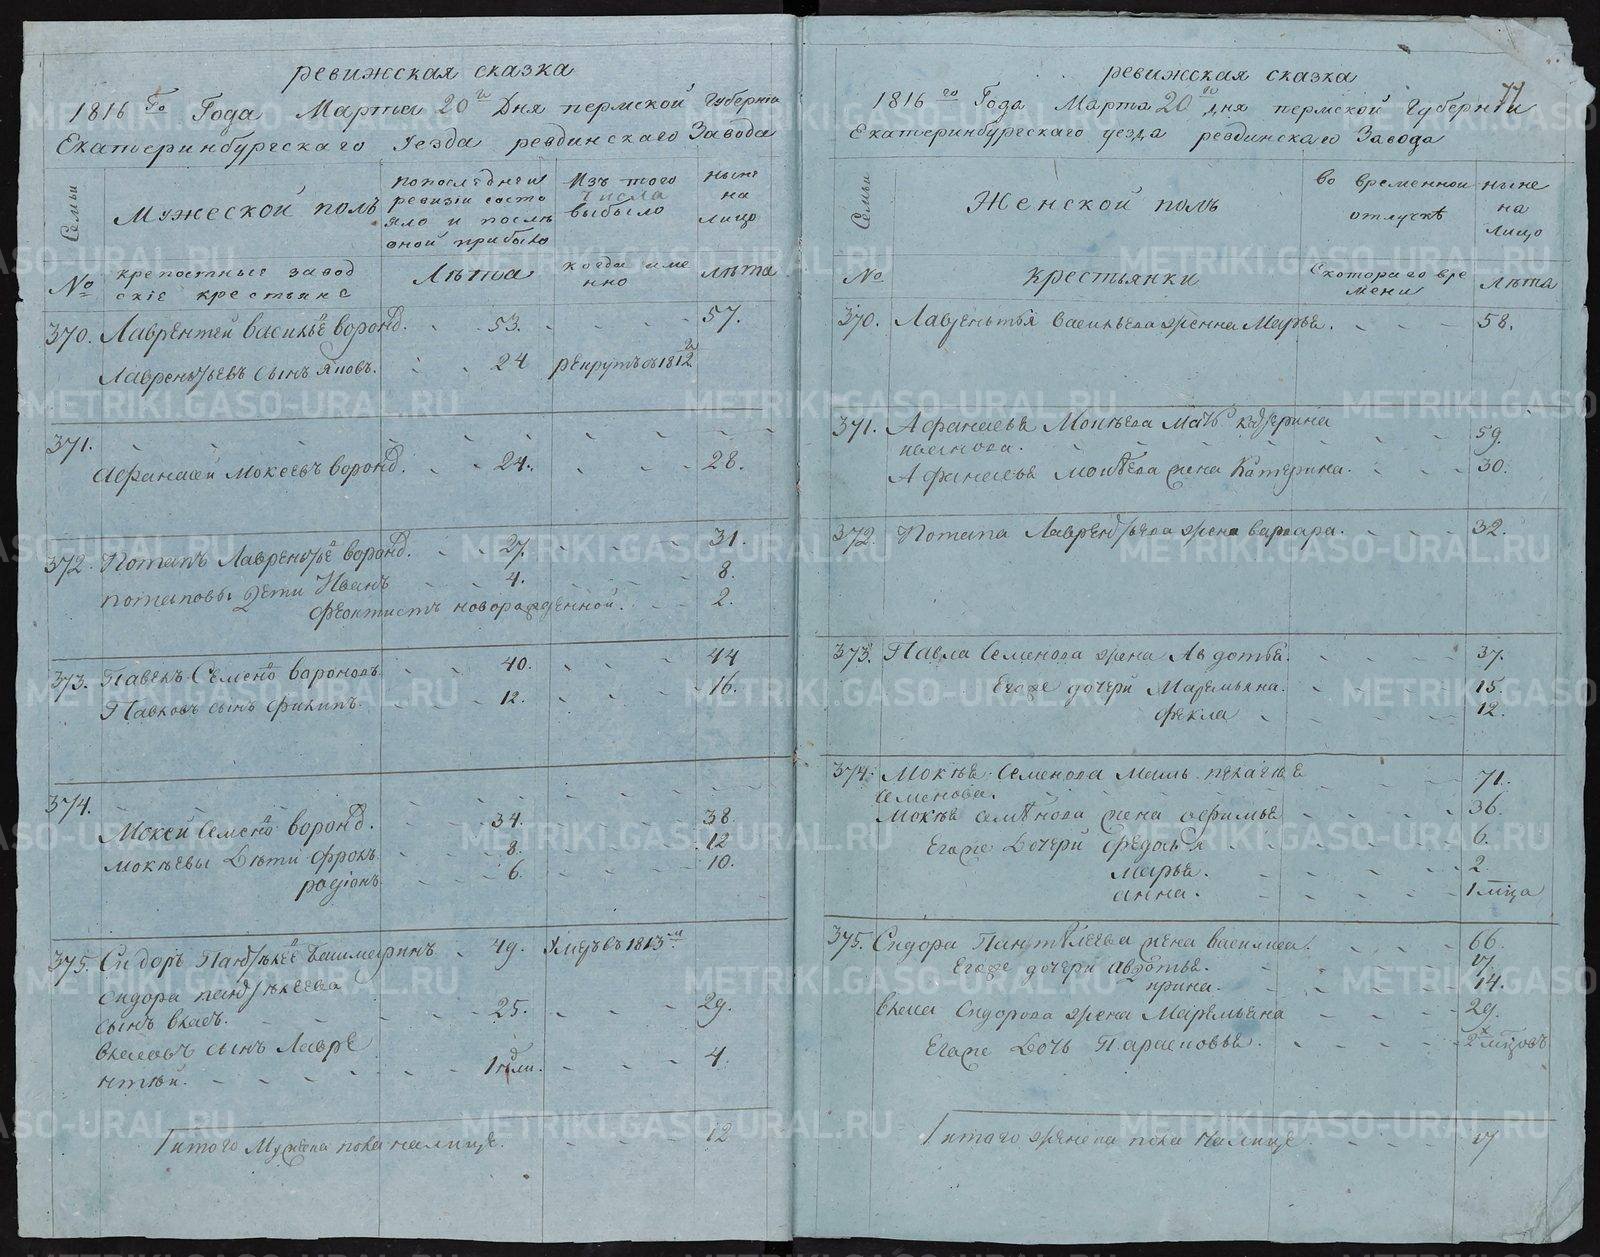 ревижская сказка
1816 го Года Марта 20 го Дня пермской Губернiи
Екатеринбургскаго Уезда ревдинскаго Завода
Семьи
Мужеской полъ
попоследней
ревизiи состо
яло и после
оной прибыло
Изъ того
числа
выбыло
ныне
на
лицо
№
крепостные завод
скiе крестьяне
Лѣта
когда име
нно
лѣта
370. Лаврентей Василье Воронд. 53. 57.
Лаврентьевъ сынъ 24 рекрутъ въ 1812
371.
Афанасей Мокеевъ Воронд. 24. 28.
372. Потапъ Лаврентье Воронд. 27. 31.
потаповы Дети Иванъ 4. 8.
Феоктистъ новорожденной. 2.
373. Павелъ Семено Вороновъ 40. 44
Павловъ сынъ Филипъ. 12. 16.
374.
Мокей Семено Воронд. 34. 38.
Мокѣевы Дѣти Фролъ 8. 12
родiонъ 6. 10.
375. Сидоръ Пантѣлее 49. Умеръ въ 1813
Сидора пантѣлеева
сынъ Власъ. 25. 29.
Власовъ сынъ Лавре
нтѣй. 1 4.
Итого Мужеска пола налицо. 12
77
ревижская сказка
1816 го Года Марта 20 го дня пермской Губернiи
Екатеринбургскаго уезда ревдинскаго Завода
Семьи
Женской полъ
во временной
отлучкѣ
ныне
на
лицо
№
крестьянки
Скотораго вре
мени
лѣта
370. Лаврентья Васильева женна Марья. 58.
371. Афанасья Мокѣева Мать Катерина
59.
Афанасья Мокѣева жена Катерина. 30.
372. Потапа Лаврентьева жена варвара. 32.
373. Павла Семенова жена Авдотья. 37.
Егоже дочери Маремьяна. 15.
Фекла 12.
374. Мокѣя Семенова Мать пелагѣя
Семенова. 71.
Мокѣя семѣнова жена Афимья 36.
Егоже Дочери Федосья 6.
Марья. 2
анна. 1 мца
375. Сидора Пантѣлеева жена василиса. 66.
Егоже дочери авдотья. 17.
ирина. 14.
Власа Сидорова жена Маремьяна 29.
Егоже Дочь Парасковья. 2х мцовъ
Итого женска пола Налицо. 17
METRIKI.GASO-URAL.RU